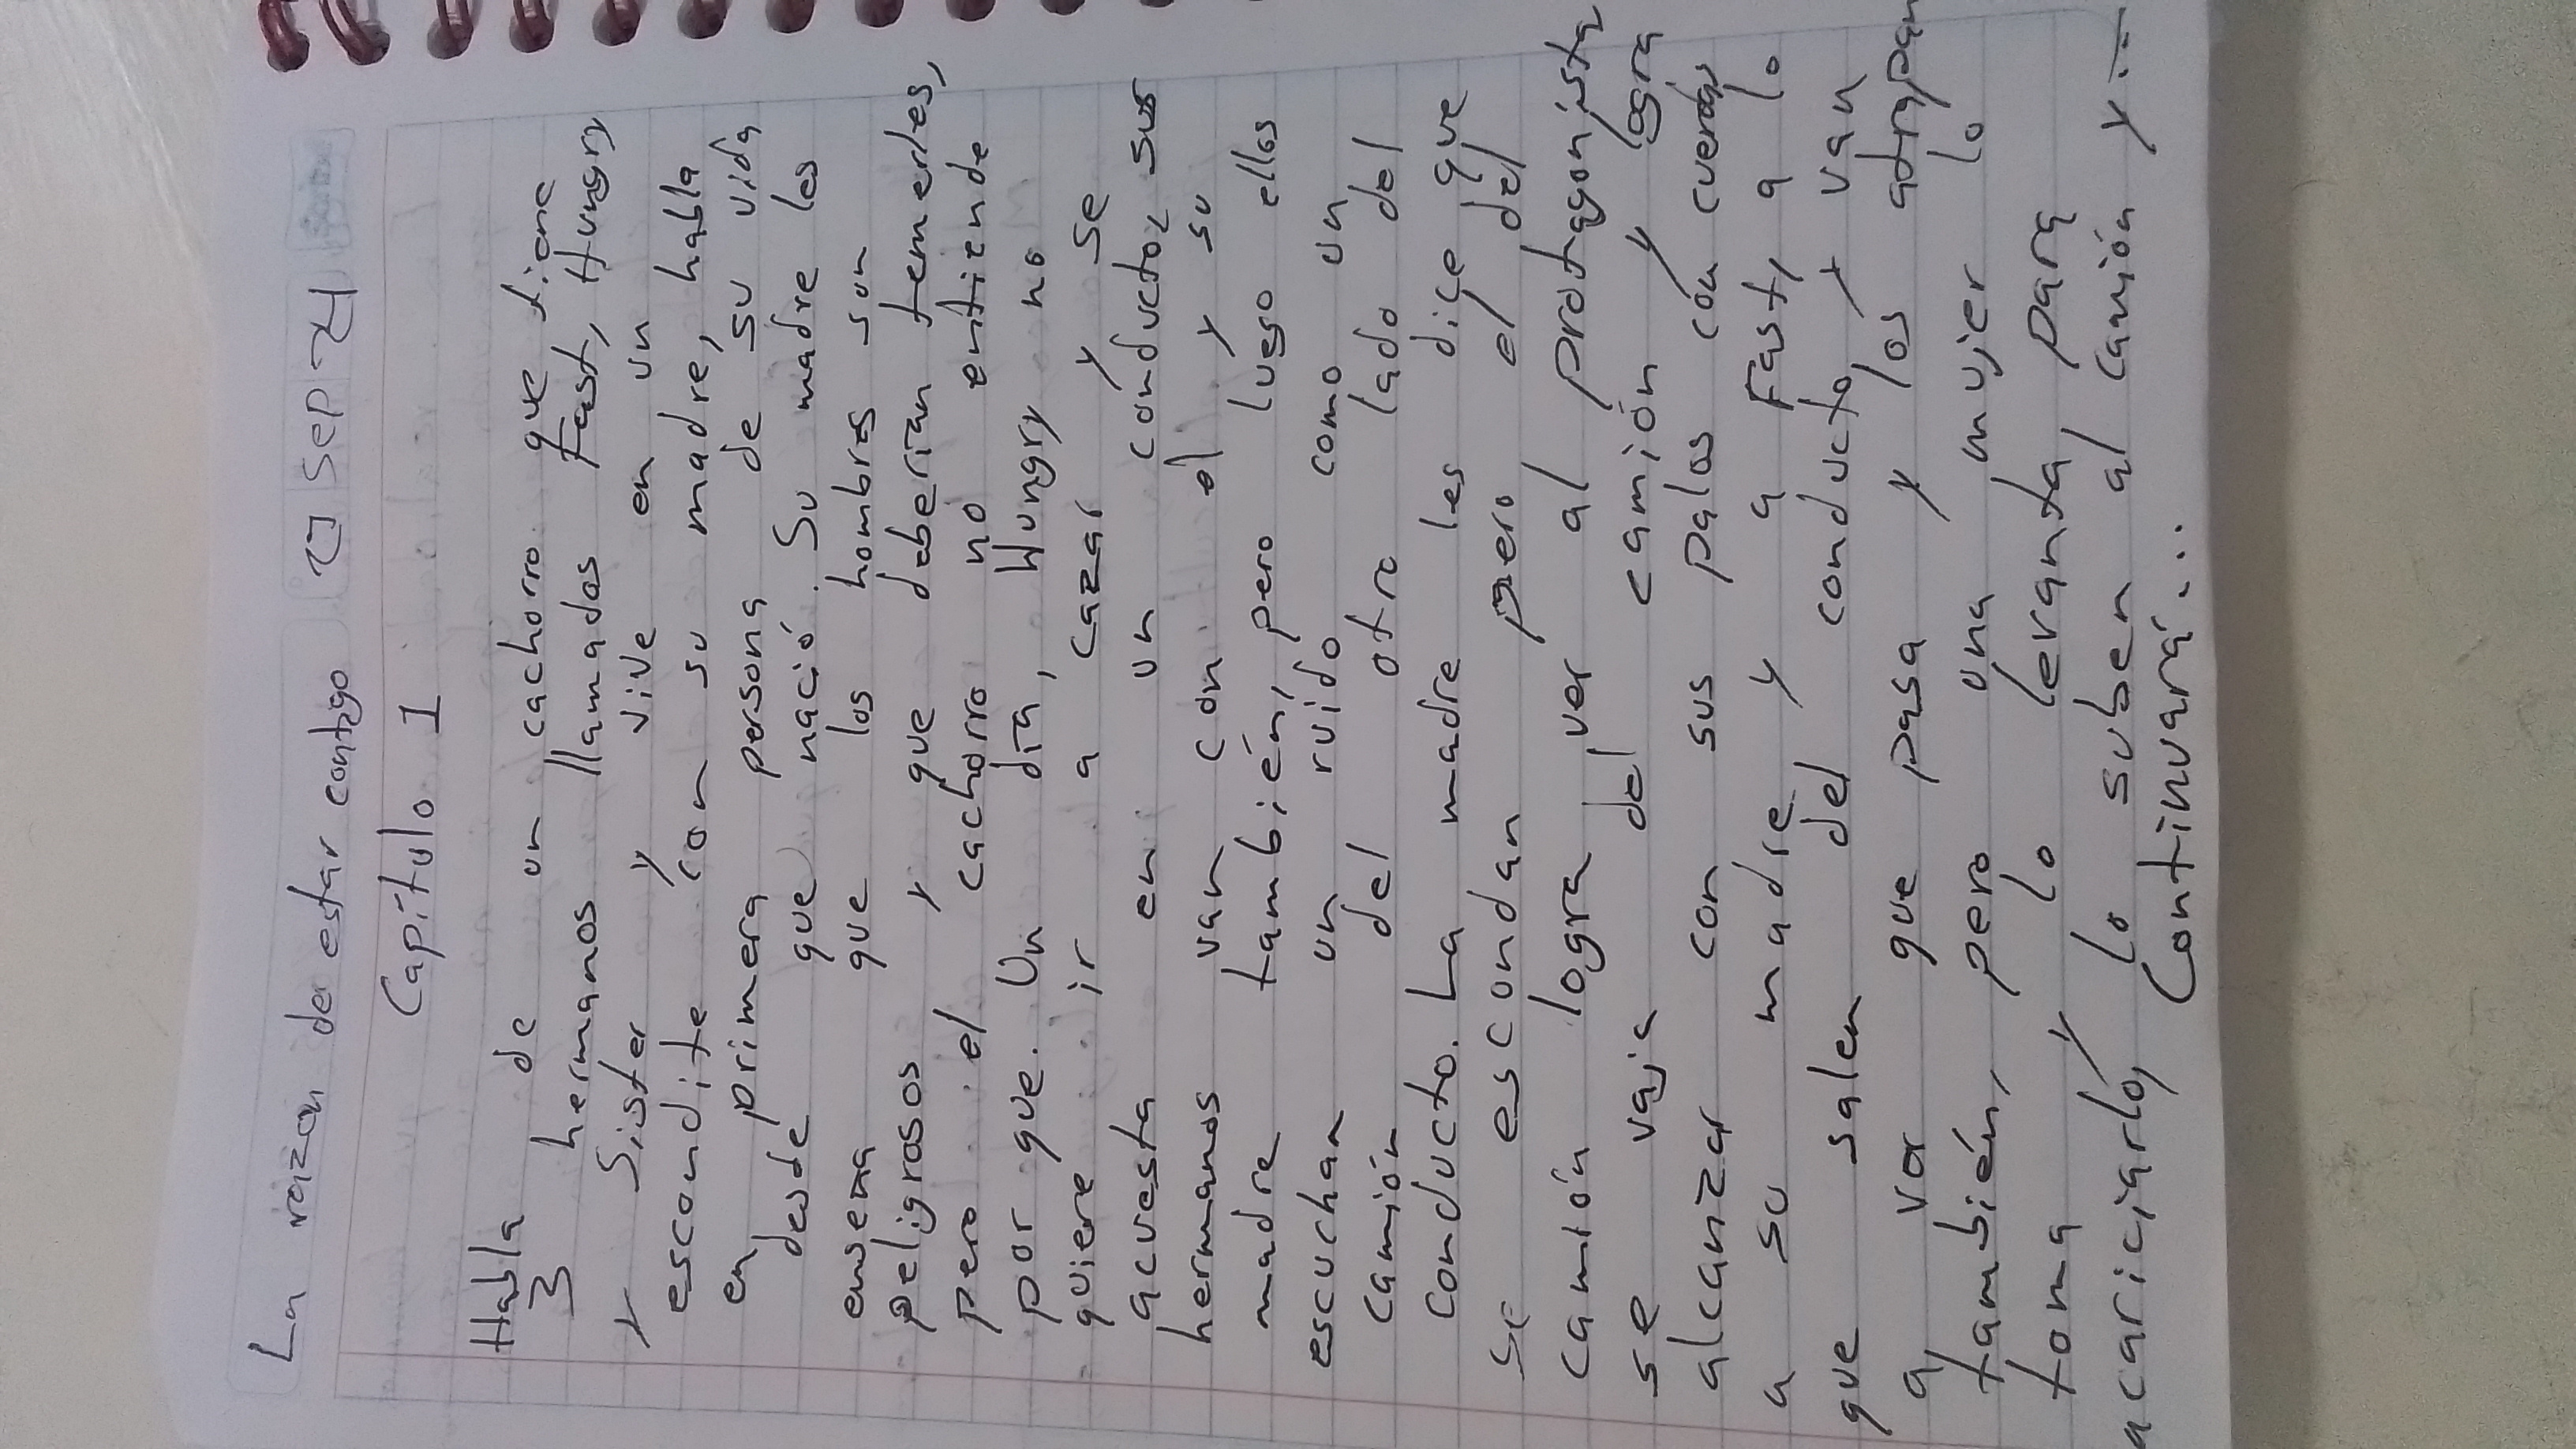 La razón de estar contigo Sep 24
Capítulo 1
Habla de un cachorro que tiene
3 hermanos llamados Fast, Hungry
y Sister y vive en un
escondite con su madre, habla
en primera persona de su vida
desde que nació. Su madre les
enseña que los hombres son
peligrosos y que deberían temerles,
pero el cachorro no entiende
por que. Un día, Hungry no
quiere ir a cazar y se
acuesta en un conducto, sus
hermanos van con él y su
madre también, pero luego ellos
escuchan un ruido como un
camión del otro lado del
conducto. La madre les dice que
se escondan pero el del
camión logra ver al protagonista
se vaja del camión y logra
alcanzar con sus palos con cuerdas
a su madre y a Fast, a lo
que salen del conducto y van
a ver que pasa y los atrapan
también, pero una mujer lo
toma y lo levanta para
acariciarlo, lo suben al camión y...
Continuará...